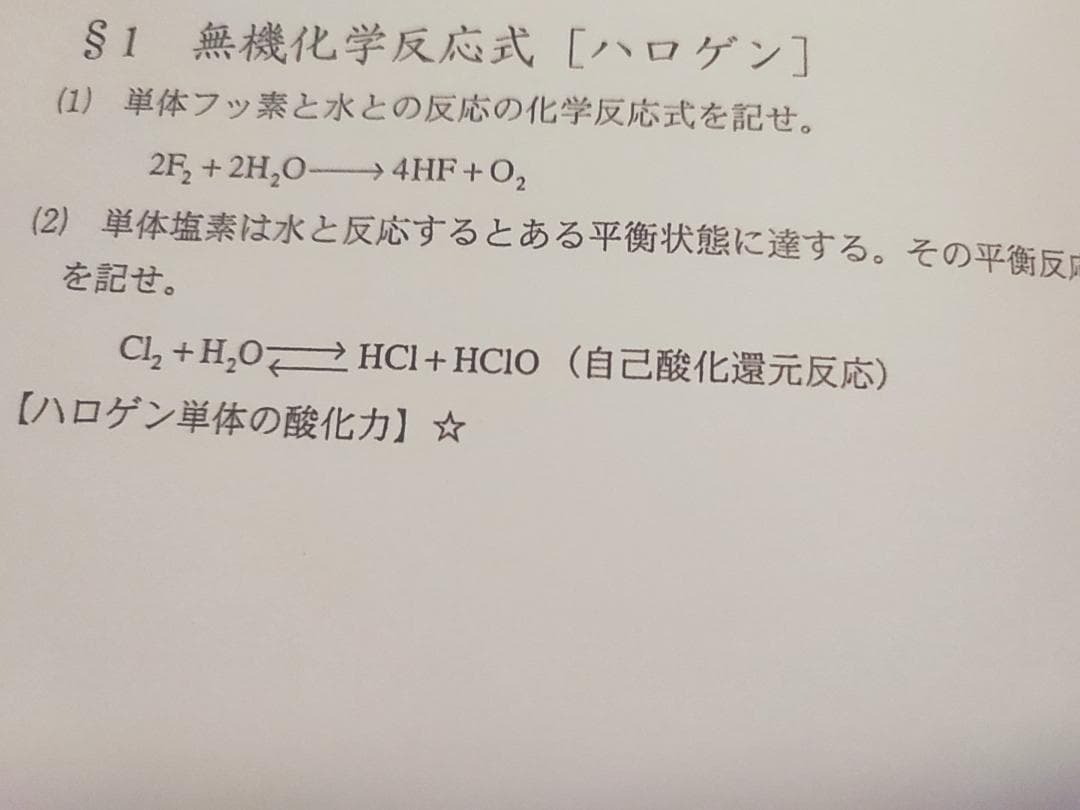 §1 無機化学反応式［ハロゲン］
(1) 単体フッ素と水との反応の化学反応式を記せ。
2F₂＋2H₂O⟶4HF＋O₂
(2) 単体塩素は水と反応するとある平衡状態に達する。その平衡反応
を記せ。
Cl₂＋H₂O⇄HCl＋HClO（自己酸化還元反応）
【ハロゲン単体の酸化力】☆